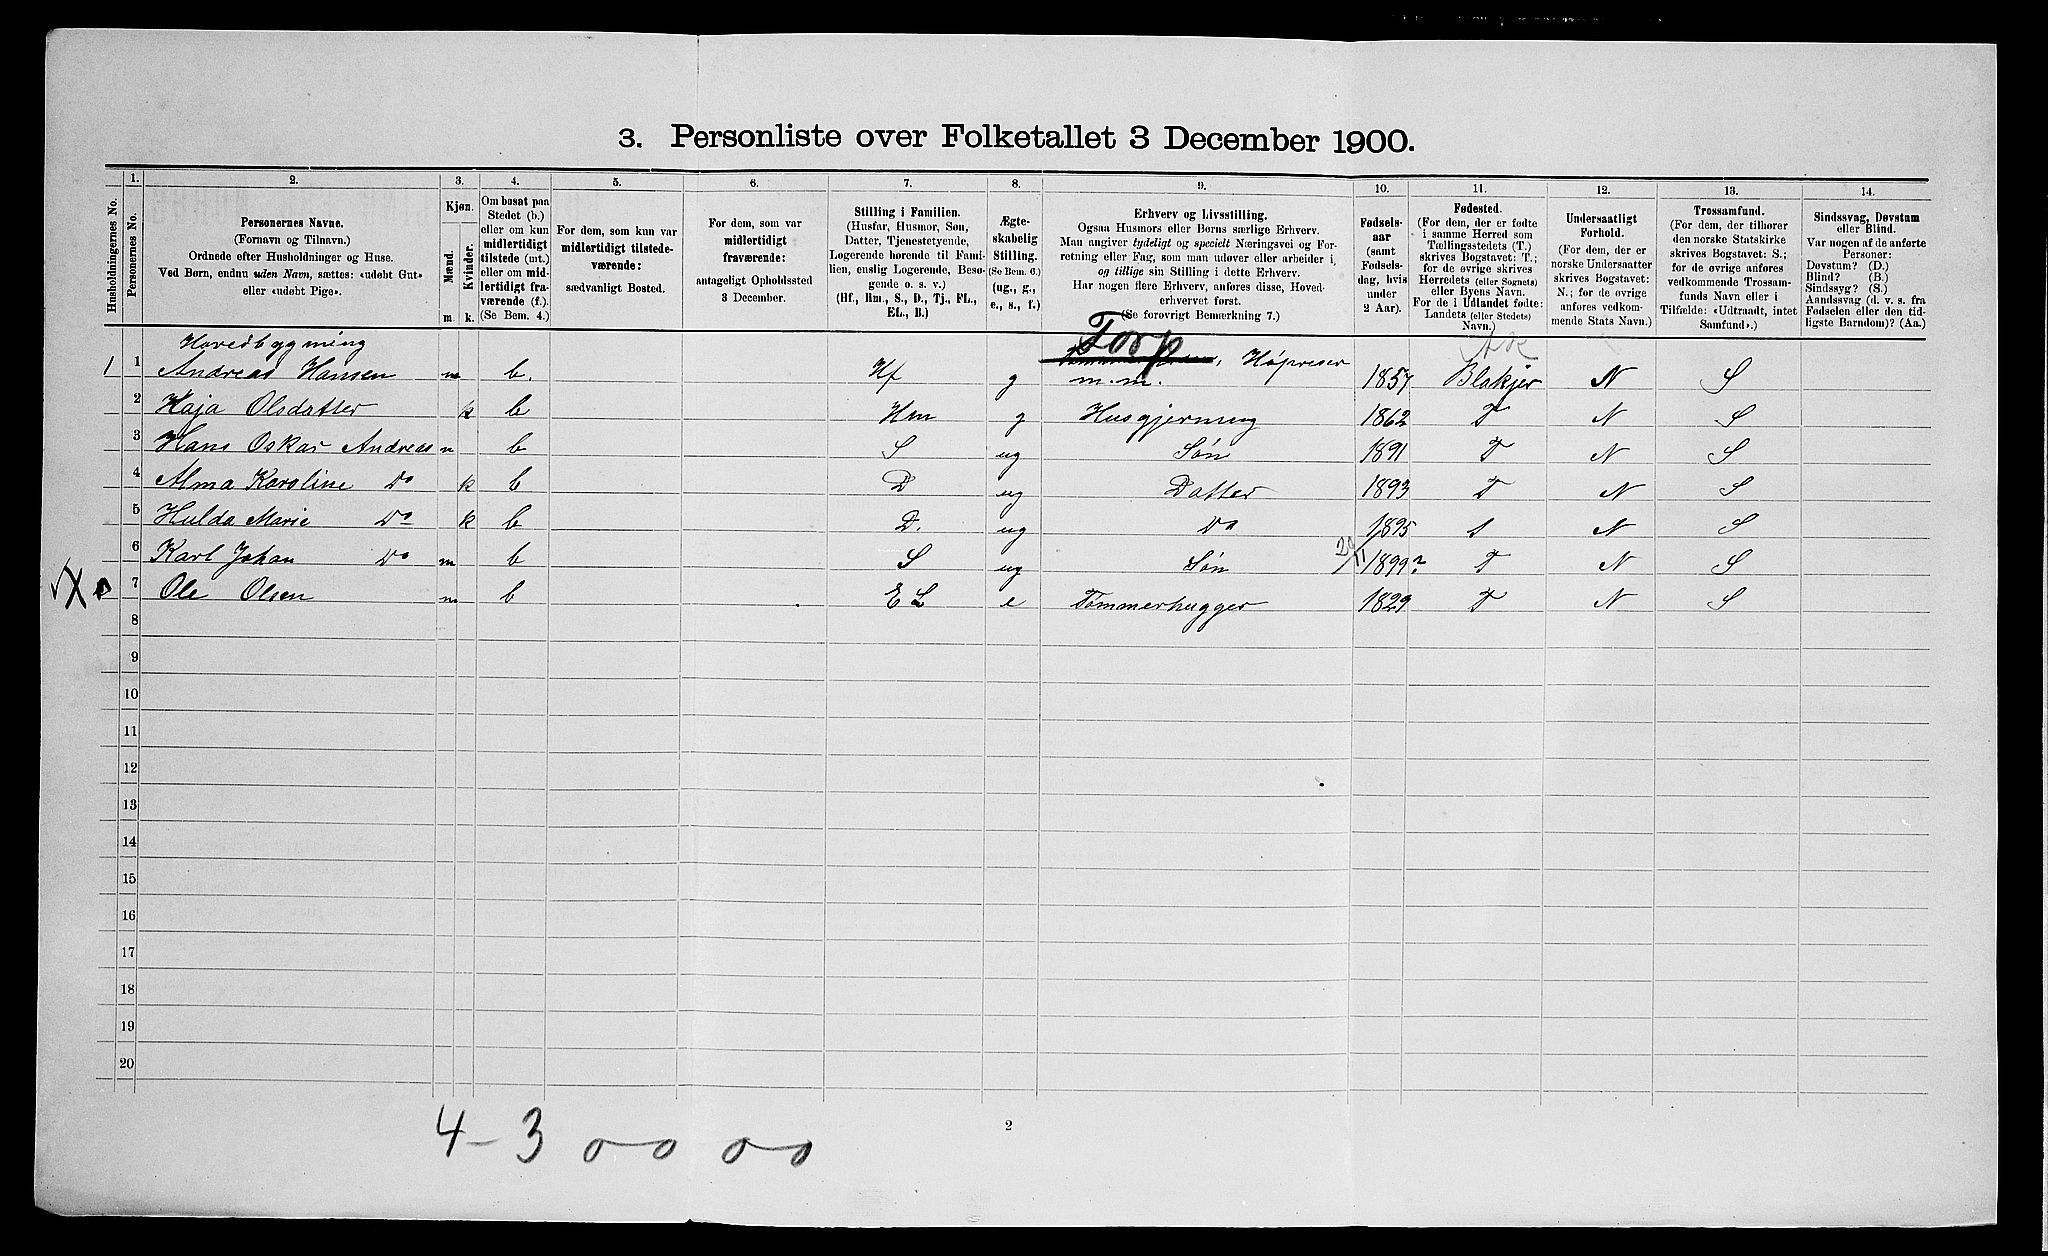 3. Personliste over Folketallet 3 December 1900.
Husholdningernes No.
1.
Personernes No.
2.
Personernes Navne.
(Fornavn og Tilnavn.)
Ordnede efter Husholdninger og Huse.
Ved Børn, endnu uden Navn, sættes: «udøbt Gut»
eller «udøbt Pige».
3.
Kjøn.
Mænd.
Kvinder.
m.
k.
4.
Om bosat paa
Stedet (b.)
eller om kun
midlertidigt
tilstede (mt.)
eller om mid-
lertidigt fra-
værende (f.).
(Se Bem. 4.)
5.
For dem, som kun var
midlertidigt tilstede-
værende:
sædvanligt Bosted.
6.
For dem, som var
midlertidigt
fraværende:
antageligt Opholdssted
3 December.
7.
Stilling i Familien.
(Husfar, Husmor, Søn,
Datter, Tjenestetyende,
Logerende hørende til Fami-
lien, enslig Logerende, Besø-
gende o. s. v.)
(Hf., Hm., S., D., Tj., FL.,
EL., B.)
8.
Ægte-
skabelig
Stilling.
(Se Bem. 6.)
(ug., g.,
e., s., f.)
9.
Erhverv og Livsstilling.
Ogsaa Husmors eller Børns særlige Erhverv.
Man angiver tydeligt og specielt Næringsvei og For-
retning eller Fag, som man udøver eller arbeider i,
og tillige sin Stilling i dette Erhverv.
Har nogen flere Erhverv, anføres disse, Hoved-
erhvervet først.
(Se forøvrigt Bemærkning 7.)
10.
Fødsels-
aar
(samt
Fødsels-
dag, hvis
under
2 Aar).
11.
Fødested.
(For dem, der er fødte
i samme Herred som
Tællingsstedets (T.)
skrives Bogstavet: T.;
for de øvrige skrives
Herredets (eller Sognets)
eller Byens Navn.
For de i Udlandet fødte:
Landets (eller Stedets)
Navn.)
12.
Undersaatligt
Forhold.
(For dem, der er
norske Undersaatter
skrives Bogstavet:
N.; for de øvrige
anføres vedkom-
mende Stats Navn.)
13.
Trossamfund.
(For dem, der tilhører
den norske Statskirke
skrives Bogstavet: S.;
for de øvrige anføres
vedkommende Trossam-
funds Navn eller i
Tilfælde: «Udtraadt, intet
Samfund».)
14.
Sindssvag, Døvstum
eller Blind.
Var nogen af de anførte
Personer:
Døvstum? (D.)
Blind? (B.)
Sindssyg? (S.)
Aandssvag (d. v. s. fra
Fødselen eller den tid-
ligste Barndom)? (Aa.)
Hovedbygning Torp Ak
1 1 Andreas Hansen m b. Hf g Høpreser m.m. 1857 Blakjer N S
2 Kaja Olsdatter k b Hm g Husgjerning 1862 T N S
3 Hans Oskar Andreas m b S ug Søn 1891 T N S
4 Alma Karoline Do k b D ug Datter 1893 T N S
5 Hulda Marie Do k b D. ug Do 1895 T N S
6 Karl Johan Do m b S ug Søn 20/11 1899? T N S
X 7 Ole Olsen m b EL e Tømmerhugger 1829 T N S
8
9
10
11
12
13
14
15
16
17
18
19
20
4-3 0-0 0-0
2